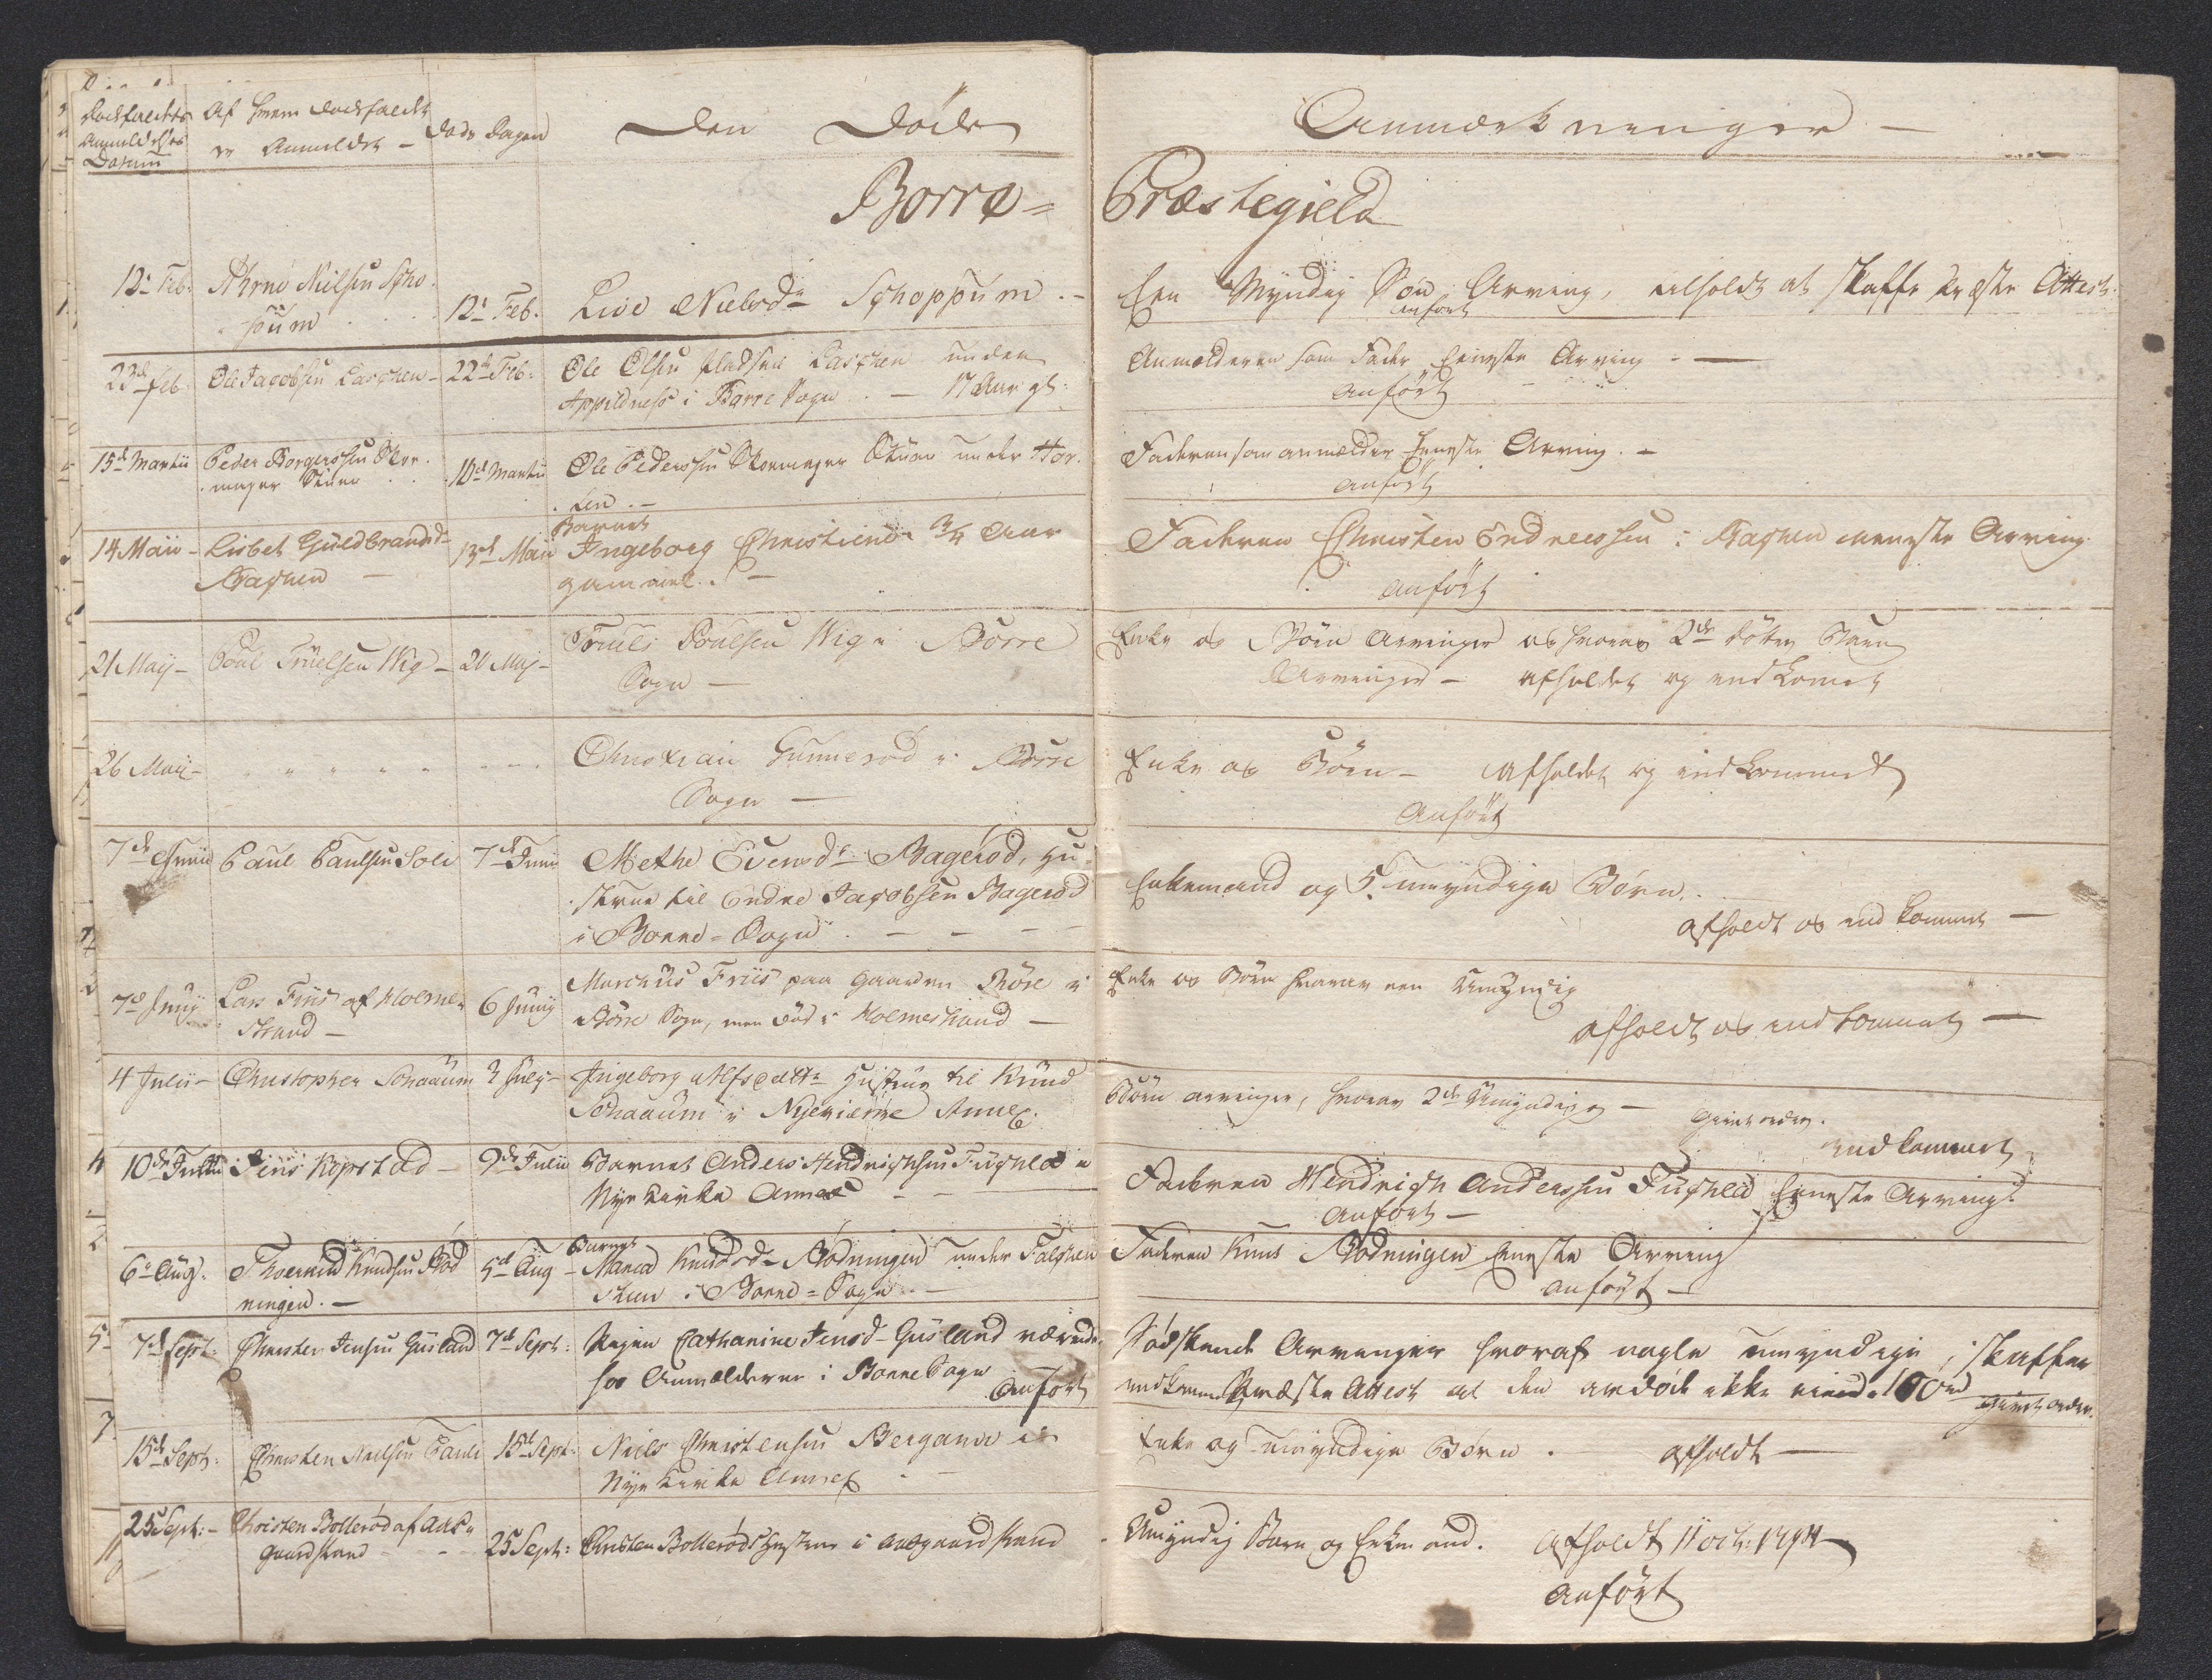 Dødsfaldets Anmeldelses Datum
Af hvem Dødsfaldet er Anmeldet -
Døds Dagen
Den Døde
Anmærkninger -
Borre = Præstegield
12te Feb:
Arne Nielsen Scho-
pum
12te Feb:
Live Nielsd: Schoppum. -
Een Myndig Søn Arving, tilholdt at skaffe Præste Attest.
anført
23de Feb:
Ole Jacobsen Laschen -
22de Feb:
Ole Olsen Pladsen Laschen under
i Borre Sogn - 17 Aar gl:
Anmelderen som Fader Eeneste Arving -
Anført
15de Martii
Peder Borgersen
Stuen
10de Martii
Ole Pedersen Stuen under Hor-
ten. -
Faderen som anmelder Eeneste Arving. -
anført
14 Maii -
Lisbet Guldbrandsd:
13de Maii
Barnet
Ingeborg Christiensd: 3/4 Aar
gammel. -
Faderen Christen Endressen i eeneste Arving
anført
21 Maij -
Poul Truelsen Wig -
20 Maj -
Truls Poulsen Wig i Borre
Sogn -
Enke og Børn Arvinger og hvoraf 2de døttre Børn
Arvinger - afholdet og indkomet
26 Maij -
Christian Gunnerød i Borre
Sogn -
Enke og Børn - afholdet og indkommet
Anført
7de Junii
Paul Paulsen Soli
7de Junii
Methe Evensd: Bagerød, Hu-
strue til Endre Jacobsen Bagerød
i Borre = Sogn. - - -
Enkemand og 5 umyndige Børn.
afholdt og indkommet -
7de Junij
Lars Friis af Holme-
strand -
6 Junij
Marchus Friis paa Gaarden Røre i
Borre Sogn, men død i Holmestrand -
Enke og Børn hvoraf een Umyndig
afholdt og indkommet -
4 Julii -
Christopher Schaaum
3 July -
Ingeborg Alfsdatt: Hustrue til Knud
Schaaum i Nyekierke Annex.
Børn arvinger, hvoraf 2de Umyndige -
indkommet
10de Julii
Jens Kopstad -
9de Julii
Barnet Anders Hendrichsen Fughled i
Nyekirke Annex - -
Faderen Hendrich Anderssen Fughled Eeneste Arving.
Anført -
6te Aug:
Knudsen Rød-
ningen. -
5de Aug -
Barnet
Maren Knudsd: Rødningen under Falchen-
steen i Borre = Sogn. -
Faderen Knud Rødningen Eeneste Arving
anført -
7de Sept:
Christen Jensen Gusland
7de Sept:
Pigen Cathanine Jensd: Gusland værende
hos Anmelderen i Borre Sogn
Anført
Sødskende Arvinger hvoraf nogle umyndige, skaffer
indkommet Præste Attest at den afdøde ikke eiede 100 rd
givet ordre.
15de Sept:
Christen Nielsen
15de Sept:
Niels Christensen Bergan i
Nyekirke Annex -
Enke og umyndige Børn. afholdt -
25 Sept: -
Christen Bollerød af Aas-
gaardstrand - -
25 Sept:
Christen Bollerøds Hustrue i Aasgaardstrand
Umyndig Barn og Enkemand. Afholdt 11 oct: 1794
Anført